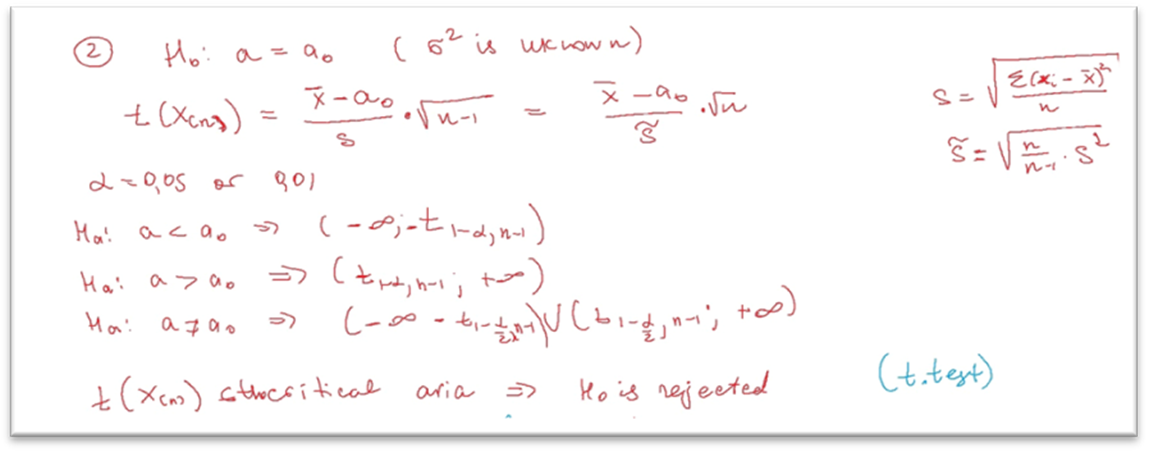 ② H₀: a = a₀ ( σ² is uknown)
t(X₍ₙ₎) = (x̄ - a₀)/s · √(n-1) = (x̄ - a₀)/s̃ · √n
s = √(Σ(xᵢ - x̄)²/n)
s̃ = √(n/(n-1) · s²)
α = 0,05 or 0,01
Hₐ: a < a₀ ⇒ (-∞; -t₁₋α,ₙ₋₁)
Hₐ: a > a₀ ⇒ (t₁₋α,ₙ₋₁; +∞)
Hₐ: a ≠ a₀ ⇒ (-∞ - t_{1-α/2, n-1}) ∪ (t_{1-α/2, n-1}; +∞)
t(X₍ₙ₎) critical aria ⇒ H₀ is rejected (t.test)